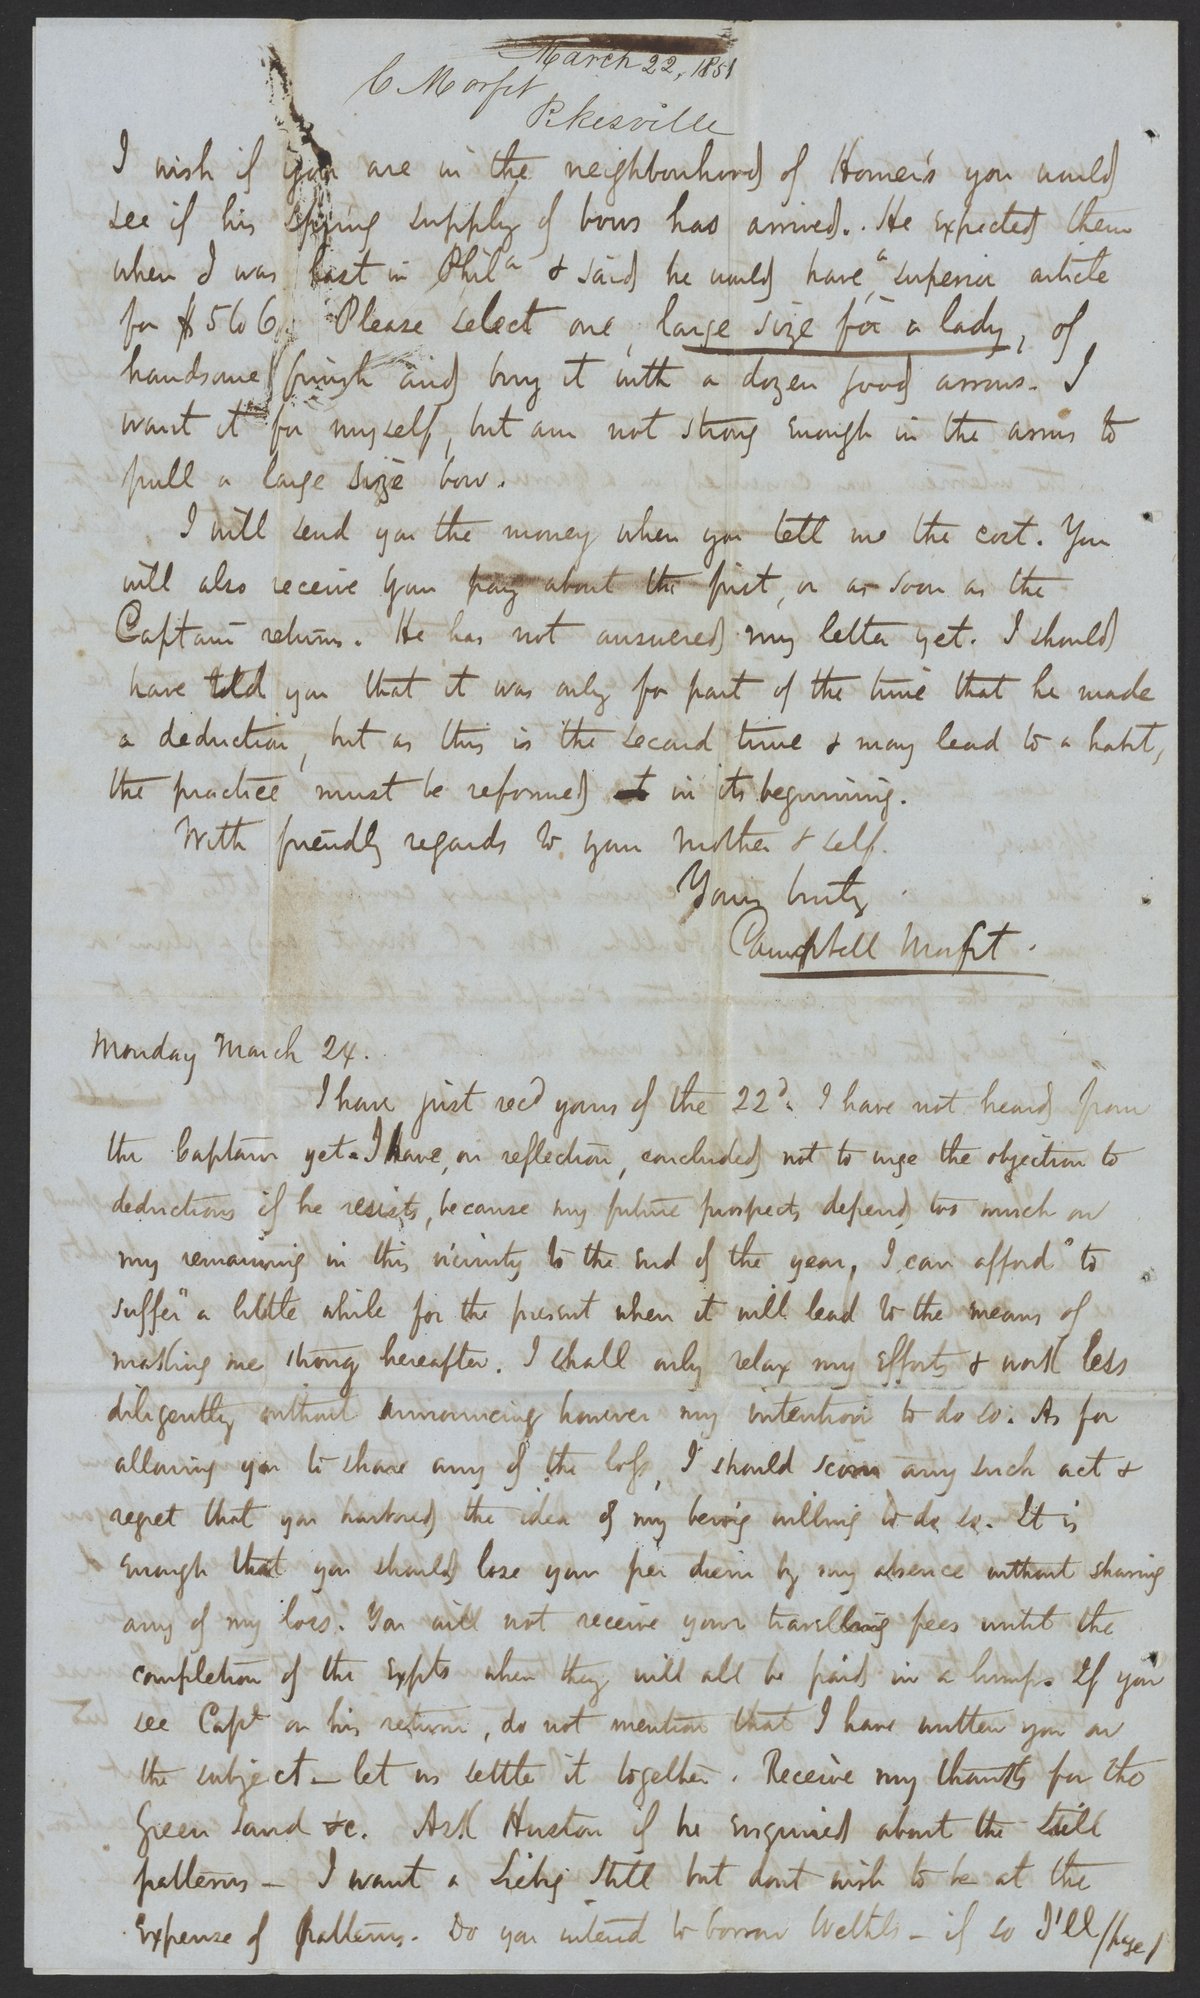 March 22, 1851
C Morfit
Pikesville
I wish if you are in the neighbourhood of Horner's you would
see if his spring supply of bows has arrived. He expected them
when I was last in Phila & said he would have a superior article
for $5 to 6. Please select one, large size for a lady, of
handsome finish and buy it with a dozen good arrows. I
want it for myself, but am not strong enough in the arms to
pull a large size bow.
I will send you the money when you tell me the cost. You
will also receive your pay about the first, or as soon as the
Captain returns. He has not answered my letter yet. I should
have told you that it was only for part of the time that he made
a deduction, but as this is the second time & may lead to a habit,
the practice must be reformed in its beginning.
With friendly regards to your mother & self.
Yours truly
Campbell Morfit.
Monday March 24.
I have just recd yours of the 22d. I have not heard from
the Captain yet. I have, on reflection, concluded not to urge the objection to
deductions if he resists, because my future prospects depend too much on
my remaining in this vicinity to the end of the year, I can afford "to
suffer" a little while for the present when it will lead to the means of
making me strong hereafter. I shall only relax my efforts & work less
diligently without announcing however my intention to do so. As for
allowing you to share any of the loss, I should scorn any such act &
regret that you harbored the idea of my being willing to do so. It is
enough that you should lose your per diem by my absence without sharing
any of my loss. You will not receive your travelling fees until the
completion of the expts when they will all be paid in a lump. If you
see Capt on his return, do not mention that I have written you on
the subject — let us settle it together. Receive my thanks for the
Green Sand &c. Ask Huston if he enquired about the still
patterns — I want a Liebig Still but dont wish to be at the
expense of patterns. Do you intend to borrow — if so I'll /page/